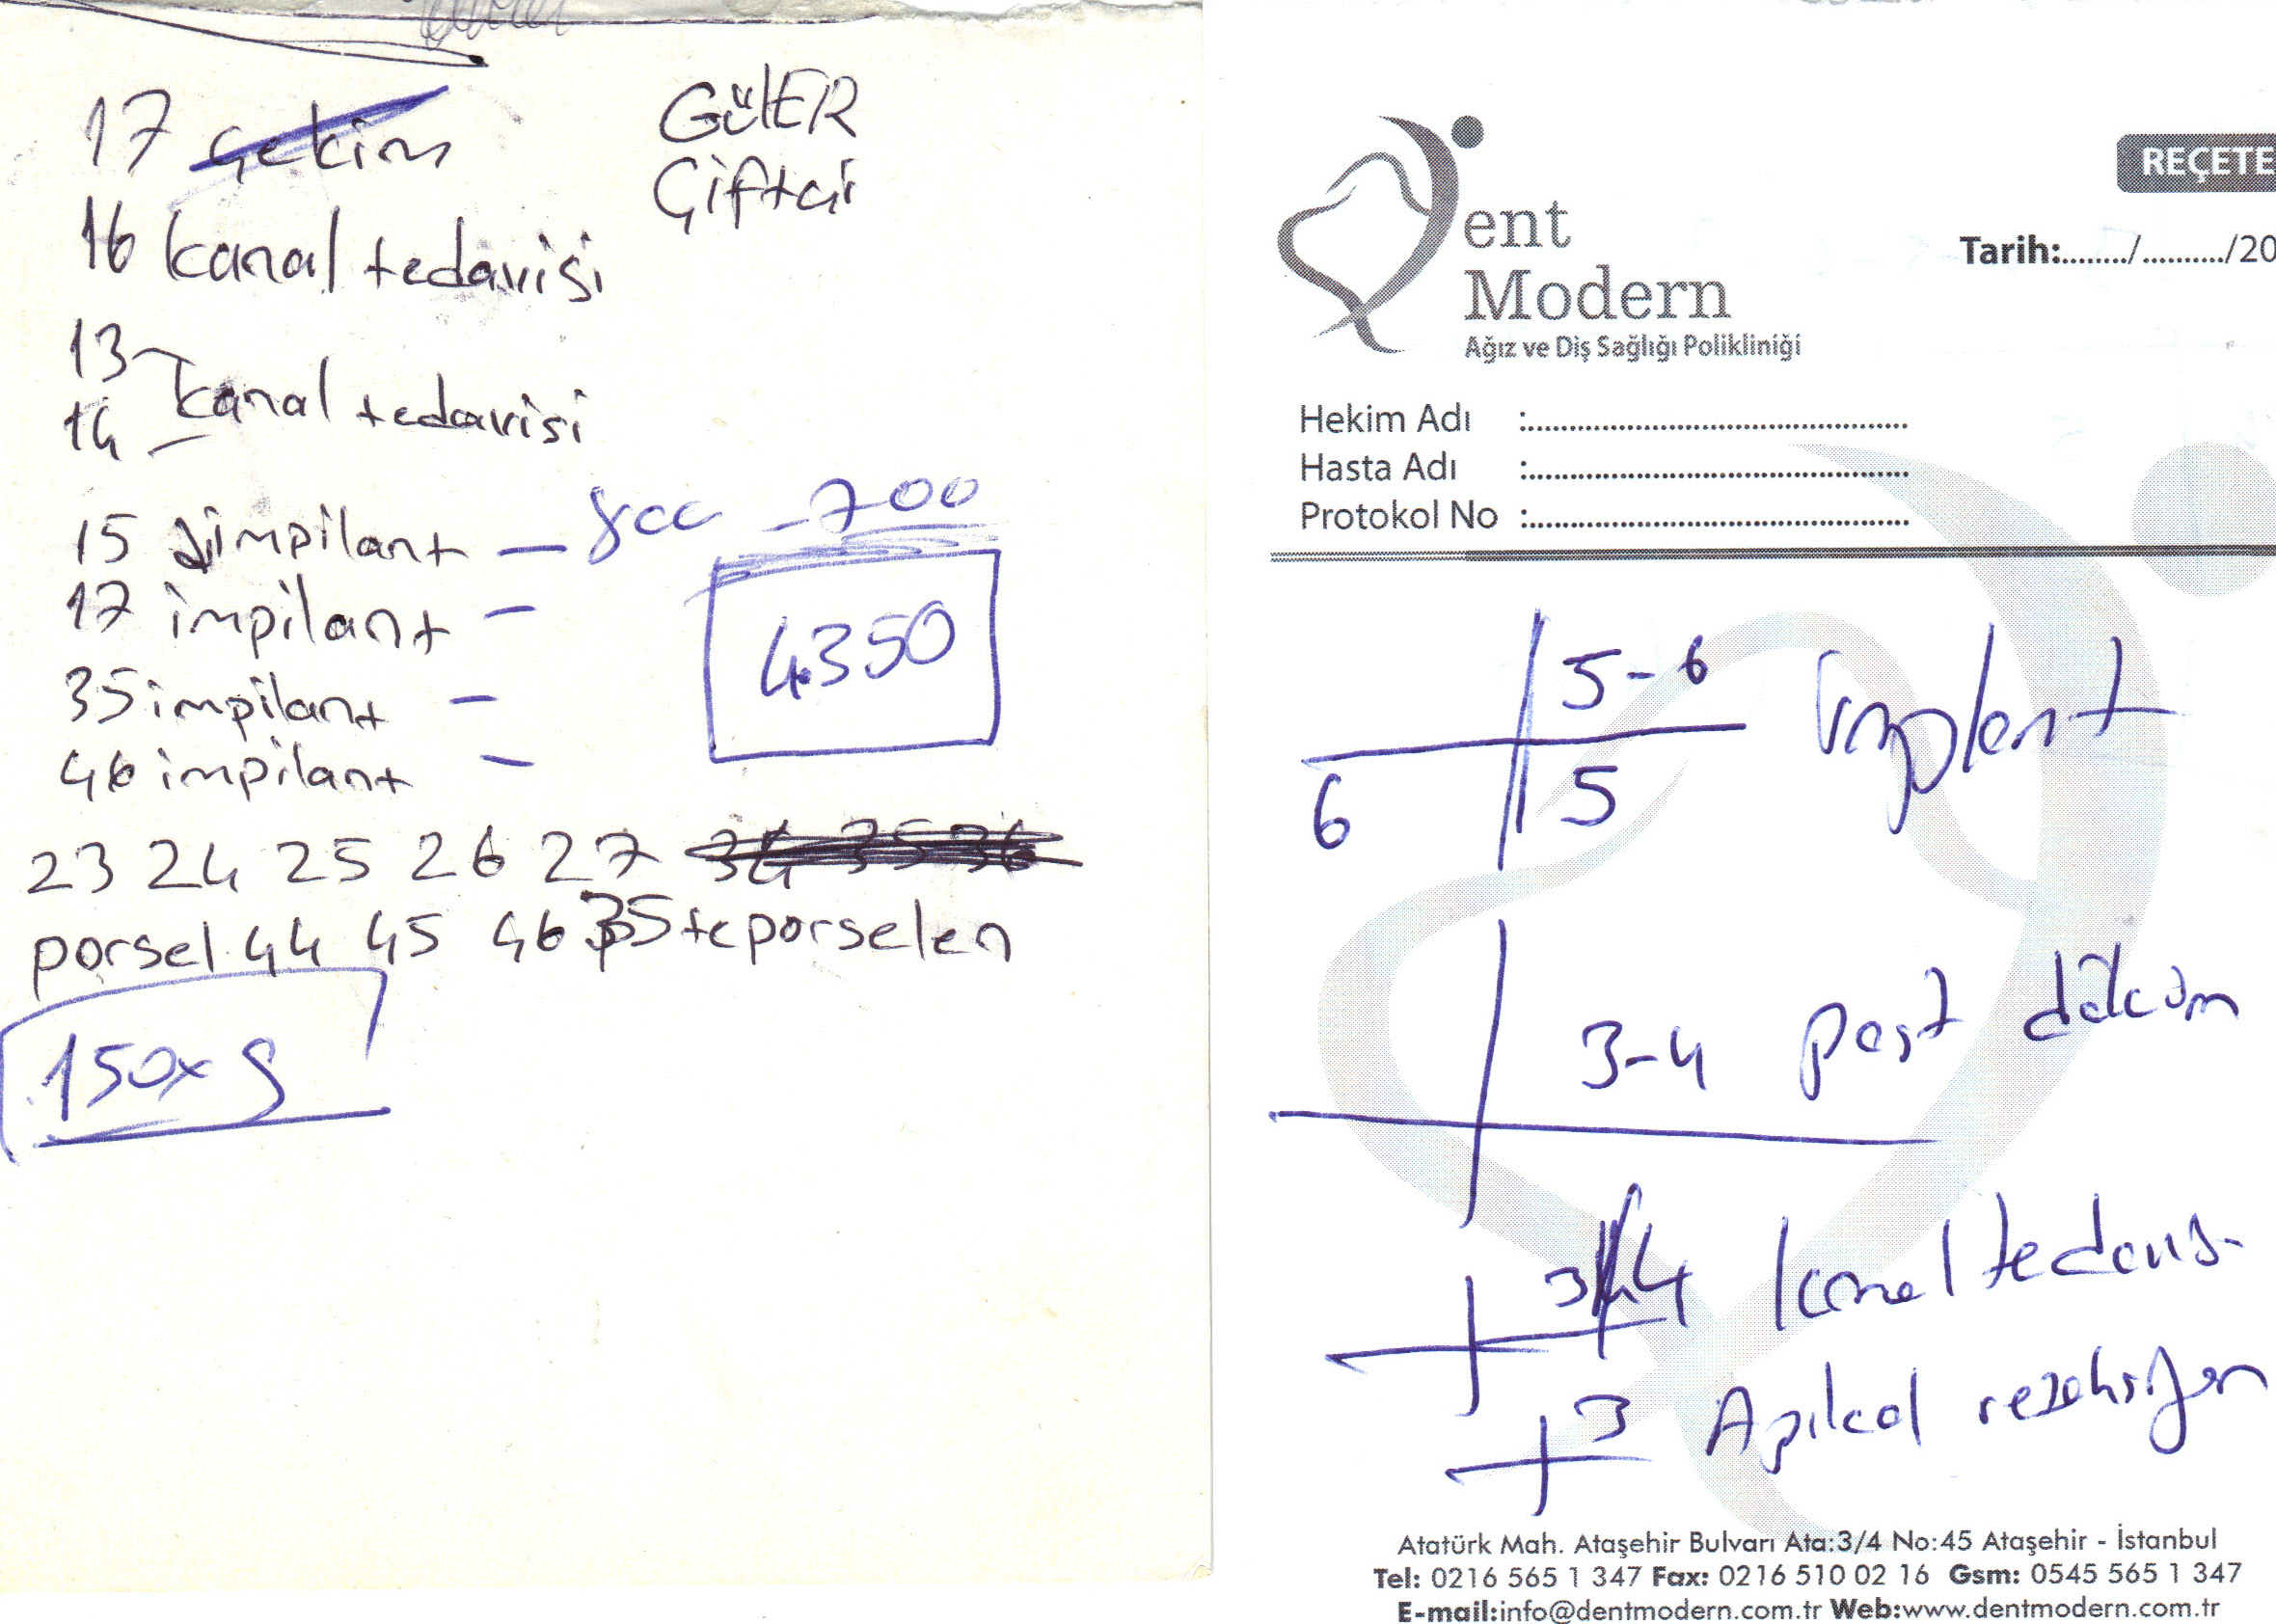 17 çekim
GÜLER
Çiftçi
16 kanal tedavisi
13
14 kanal tedavisi
15 impilant — 800 - 700
17 impilant —
35 impilant —
46 impilant —
4.350
23 24 25 26 27 34 35 36
porsel 44 45 46 35 te porselen
150x9
REÇETE
Dent
Modern
Ağız ve Diş Sağlığı Polikliniği
Tarih:......../........../20
Hekim Adı :
Hasta Adı :
Protokol No :
5-6 implant
6 5
3-4 post döküm
3 4 kanal tedavisi
3 Apikal rezeksiyon
Atatürk Mah. Ataşehir Bulvarı Ata:3/4 No:45 Ataşehir - İstanbul
Tel: 0216 565 1 347 Fax: 0216 510 02 16 Gsm: 0545 565 1 347
E-mail:info@dentmodern.com.tr Web:www.dentmodern.com.tr